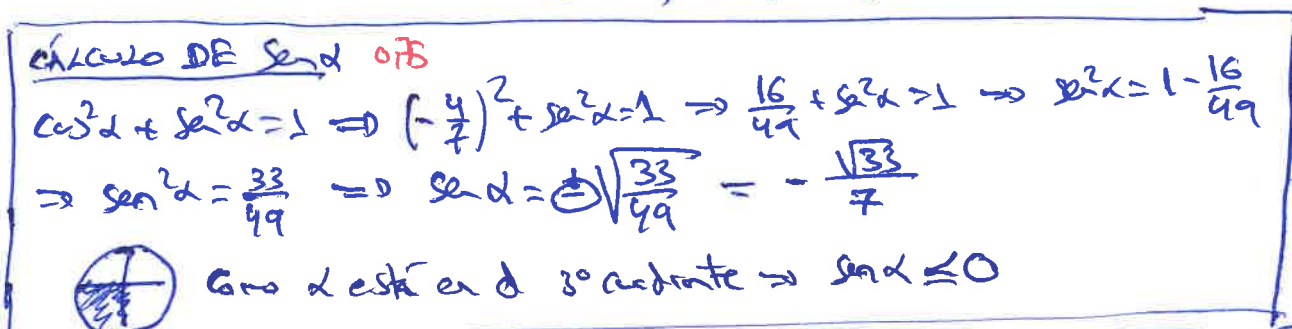 CÁLCULO DE Sen α 0,75
cos²α + sen²α = 1 ⇒ (-4/7)² + sen²α = 1 ⇒ 16/49 + sen²α = 1 ⇒ sen²α = 1 - 16/49
⇒ sen²α = 33/49 ⇒ sen α = ±√(33/49) = - √33/7
Como α está en el 3º cuadrante ⇒ sen α ≤ 0